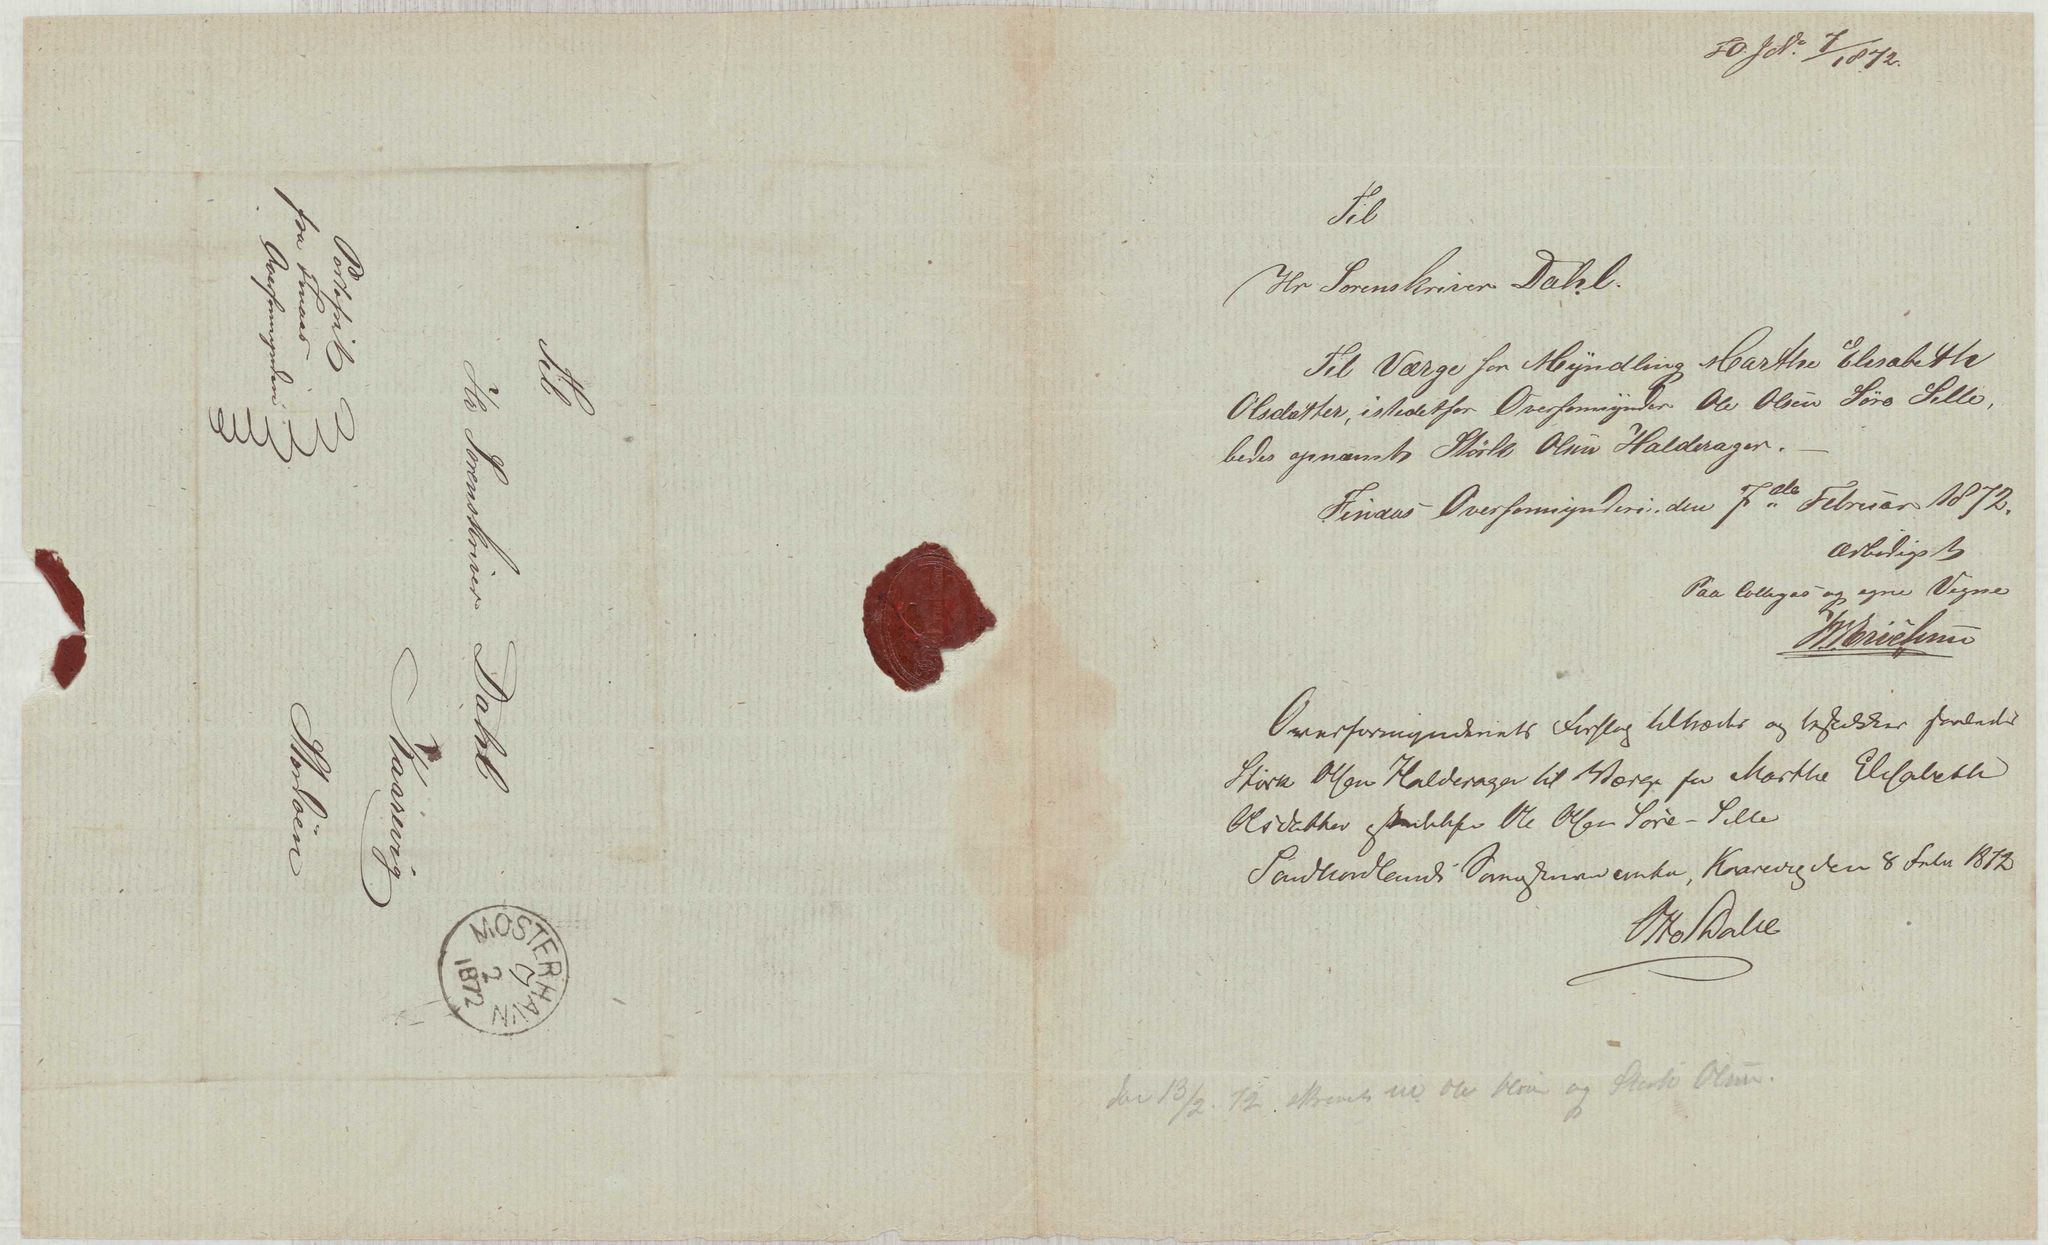 Portofrit
fra Finaas
Overformynderi
Til
Hr Sorenskriver Dahl
Kaarevig
Storöen
MOSTERHAVN
7
2
1872
F.O. J.No. 7/1872.
Til
Hr Sorenskriver Dahl.
Til Værge for Myndling Marthe Elisabeth
Olsdatter, istedetfor Overformynder Ole Olsen Söre Lille,
bedes opnævnt Störk Olsen Halderager. —
Finaas Overformynderi den 7de Februar 1872.
Ærbødigst
Paa Collegas og egne Vegne
Overformynderiets Forslag tiltrædes og beskikkes saaledes
Störk Olsen Halderager til Værge for Marthe Elisabeth
Olsdatter istedetfor Ole Olsen Söre-Lille
Söndhordlands Sorenskriverembede, Kaarevig den 8 Febr 1872
Otto Dahl
den 13/2. 72. skrevet til Ole Olsen og Störk Olsen.